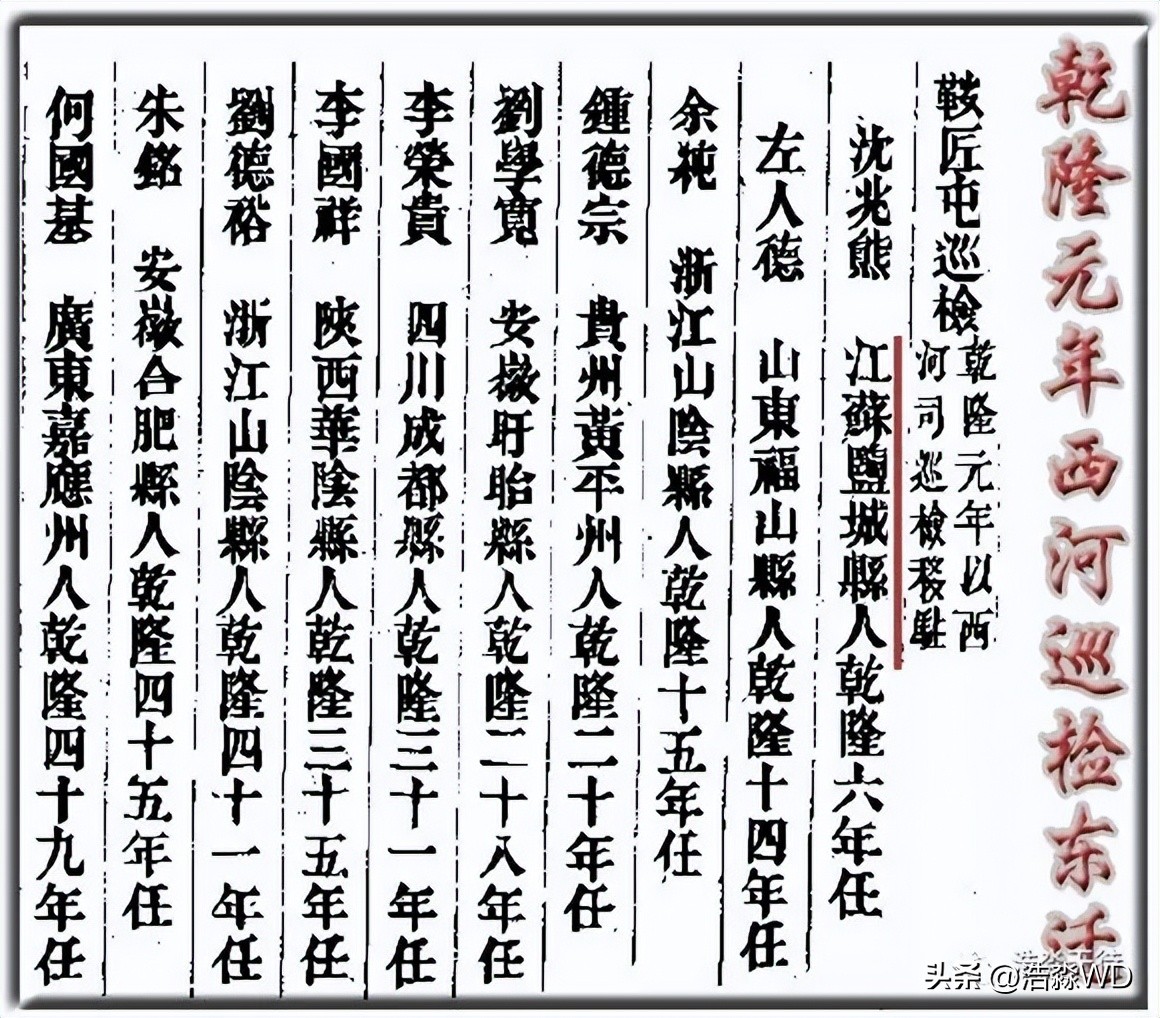 乾隆元年西河巡捡东迁
鞍匠屯巡檢
乾隆元年以西
河司巡檢移駐
沈兆熊 江蘇鹽城縣人乾隆六年任
左人德 山東福山縣人乾隆十四年任
余莼 浙江山陰縣人乾隆十五年任
鍾德宗 貴州黃平州人乾隆二十年任
劉學寬 安徽盱眙縣人乾隆二十八年任
李榮貴 四川成都縣人乾隆三十一年任
李國祥 陝西華陰縣人乾隆三十五年任
劉德裕 浙江山陰縣人乾隆四十一年任
朱銘 安徽合肥縣人乾隆四十五年任
何國基 廣東嘉應州人乾隆四十九年任
头条 @浩淼WD